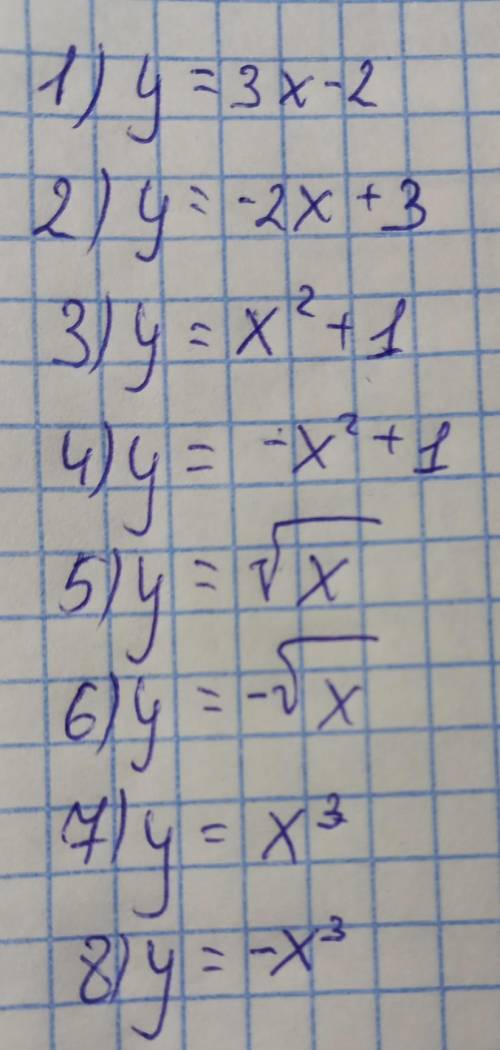 1) y = 3x - 2
2) y = -2x + 3
3) y = x² + 1
4) y = -x² + 1
5) y = √x
6) y = -√x
7) y = x³
8) y = -x³